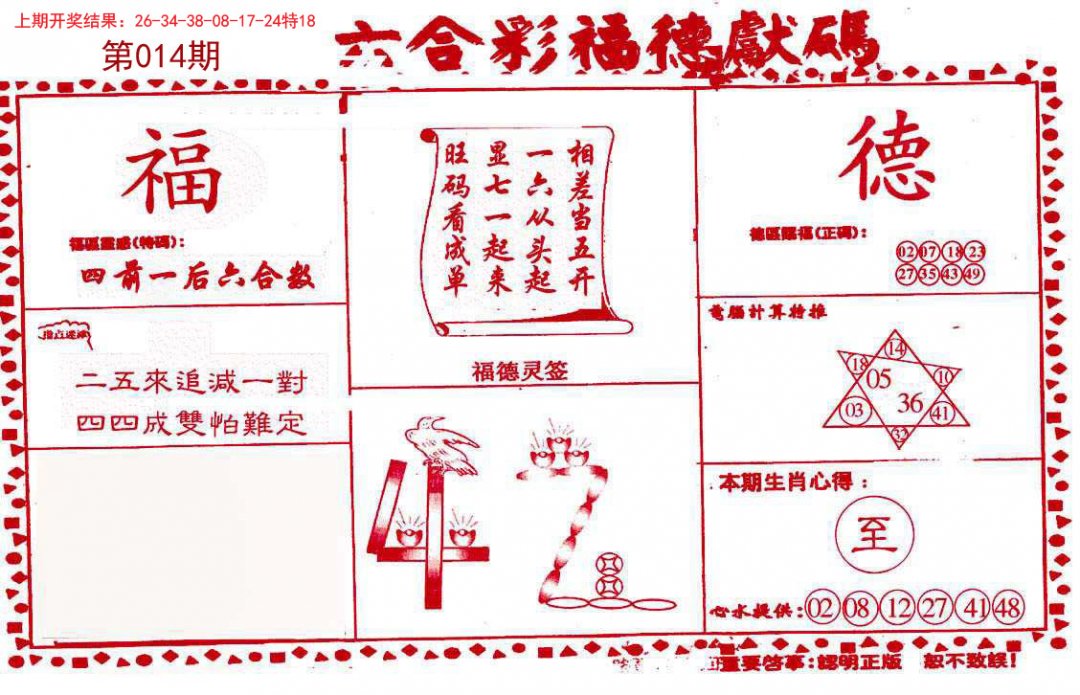 上期开奖结果：26-34-38-08-17-24特18
第014期
六合彩福德獻碼
福
福區靈感(特碼)：
四前一后六合数
指点迷津
二五來追減一對
四四成雙怕難定
相差当五开
一六从头起
显七一起来
旺码看成单
福德灵签
42
德
德區賜福(正碼)：
02 07 18 23
27 35 43 49
電腦計算特推
14
18 10
05
36
03 41
32
本期生肖心得：
至
心水提供：02 08 12 27 41 48
重要啓事：認明正版 恕不致誤！